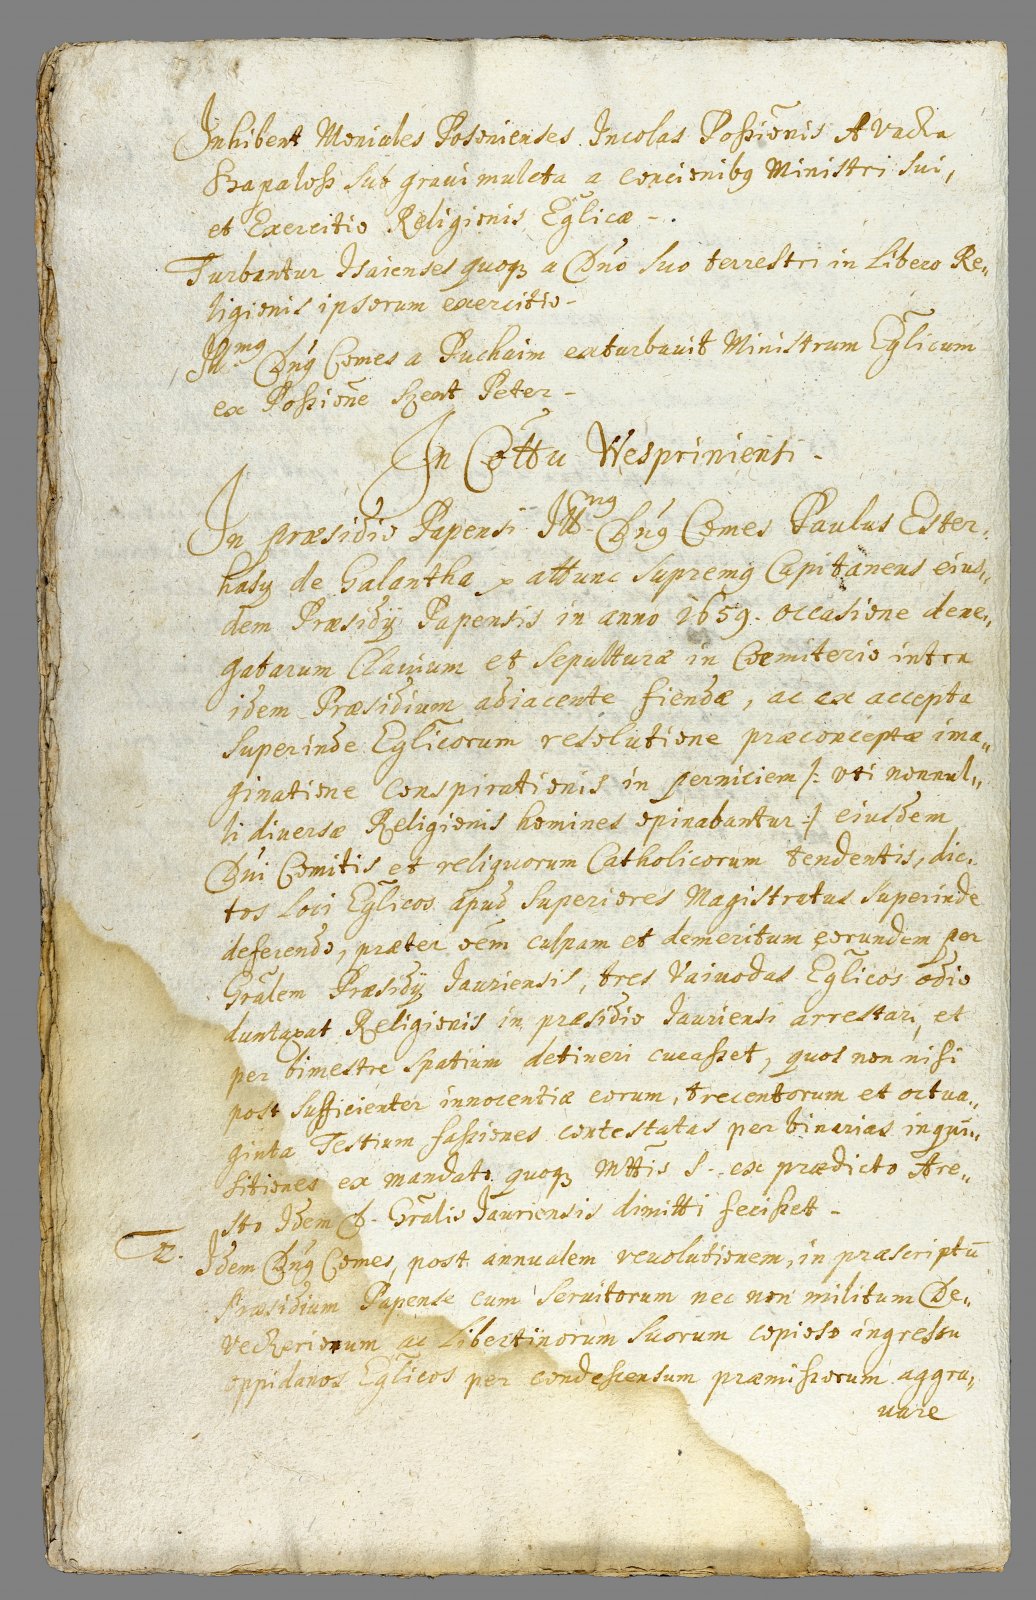 Inhibent Moniales Posonienses Incolas Possiõnis A Vadka
Szapalosz sub graui mulcta a concionibq Ministri sui,
et Exercitio Religionis Eglicæ -.
Turbantur Isaienses quoq a Dño suo terrestri in Libero Re„
ligionis ipsorum exercitio -
Illmq Dnq Comes a Puchaim exturbauit Ministrum Eglicum
ex Possiõne Szent Peter -
In Cottu Wespriniensi -
In præsidio Papensi Illmq Dnq Comes Paulus Ester„
hasy de Galantha, attunc Supremq Capitaneus eius„
dem Præsidÿ Papensis in anno 1659. occasione dene„
gatarum Clauium et sepulturæ in Coemiterio intra
idem Præsidium adiacente fiendæ, ac ex accepta
superinde Eglicorum resolutione præconceptæ ima„
ginatione conspirationis in perniciem /: uti nonnul„
li diuersæ Religionis homines opinabantur :/ eiusdem
Dñi Comitis et reliquorum Catholicorum tendentis, dic„
tos loci Eglicos apud Superiores Magistratus superinde
deferendo, præter oẽm culpam et demeritum eorundem per
Grãlem Præsidÿ Jauriensis, tres Vaiuodas Eglicos odio
duntaxat Religionis in præsidio Jauriensi arrestari, et
per bimestre spatium detineri curasset, quos non nisi
post sufficienter innocentiæ eorum, trecentorum et octua„
ginta Testium fassiones contestatas per binarias inqui„
sitiones ex mandato quoq Mttis S. ex prædicto Are„
sto Idem D. Gralis Jauriensis dimitti fecisset -
2. Idem Dnq Comes, post annualem reuolutionem, in præscriptũ
Præsidium Papense cum seruitorum nec non militum De„
veckerionum ac Libertinorum suorum copioso ingressu
oppidanos Eglicos per condescensum præmissorum aggra„
uare